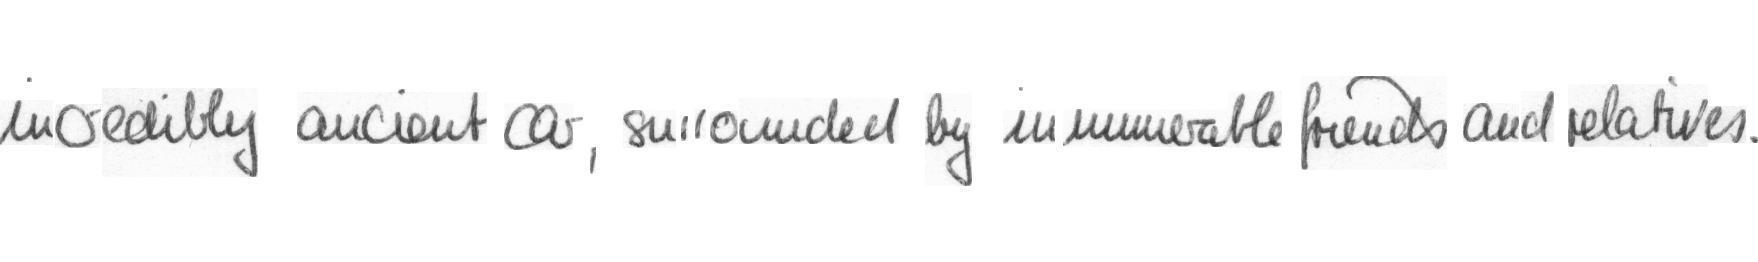 incredibly ancient car, surrounded by innumerable friends and relatives.